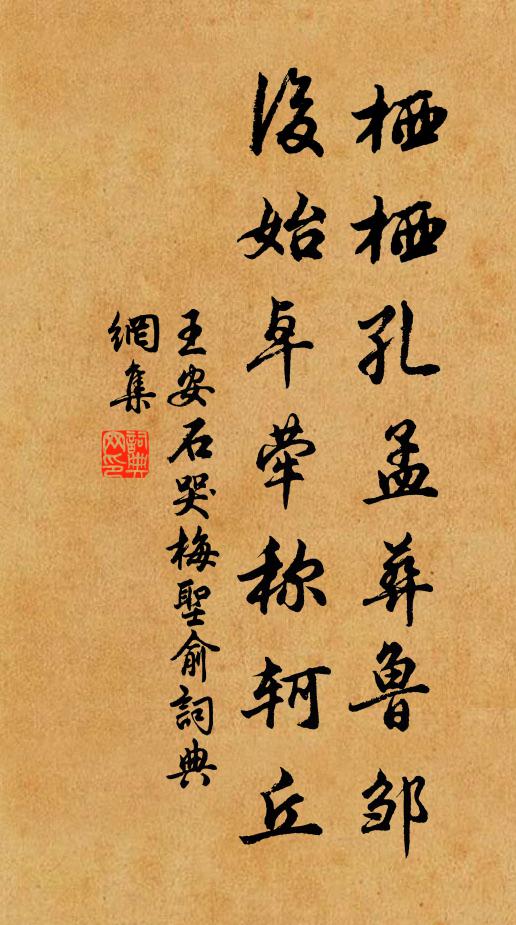 栖栖孔孟葬鲁邹
後始卓荦称轲丘
王安石哭梅聖俞詞典
網集
詞典
网印